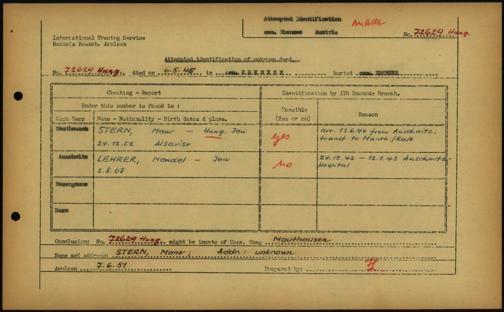 Attempted Identification
cem. Ebensee Austria
No. 72629 Hung.
International Tracing Service
Records Branch, Arolsen
Attempted identification of unknown dead.
No. 72629 Hung. died on 6.5.45 in cem. EBENSEE buried cem. EBENSEE
Checking - Report
Identification by ITS Records Branch.
Under this number is found in :
Possible
(Yes or no)
Reason
Conc. Camp
Name - Nationality - Birth dates & place.
Mauthausen
STERN, Manr - Hung. Jew
24.12.02 Alsoviso
yes
arr. 13.6.44 from Auschwitz;
transf. to Mauth/
Auschwitz
LEHRER, Mendel - Jew
2.8.08
no
24.12.42 - 12.1.43 Auschwitz-
Hospital
Dora
Conclusion: No. 72629 Hung. might be inmate of Conc. Camp Mauthausen
Name and address: STERN, Manr; Addr: unknown
Arolsen 7.6.51
Prepared by: